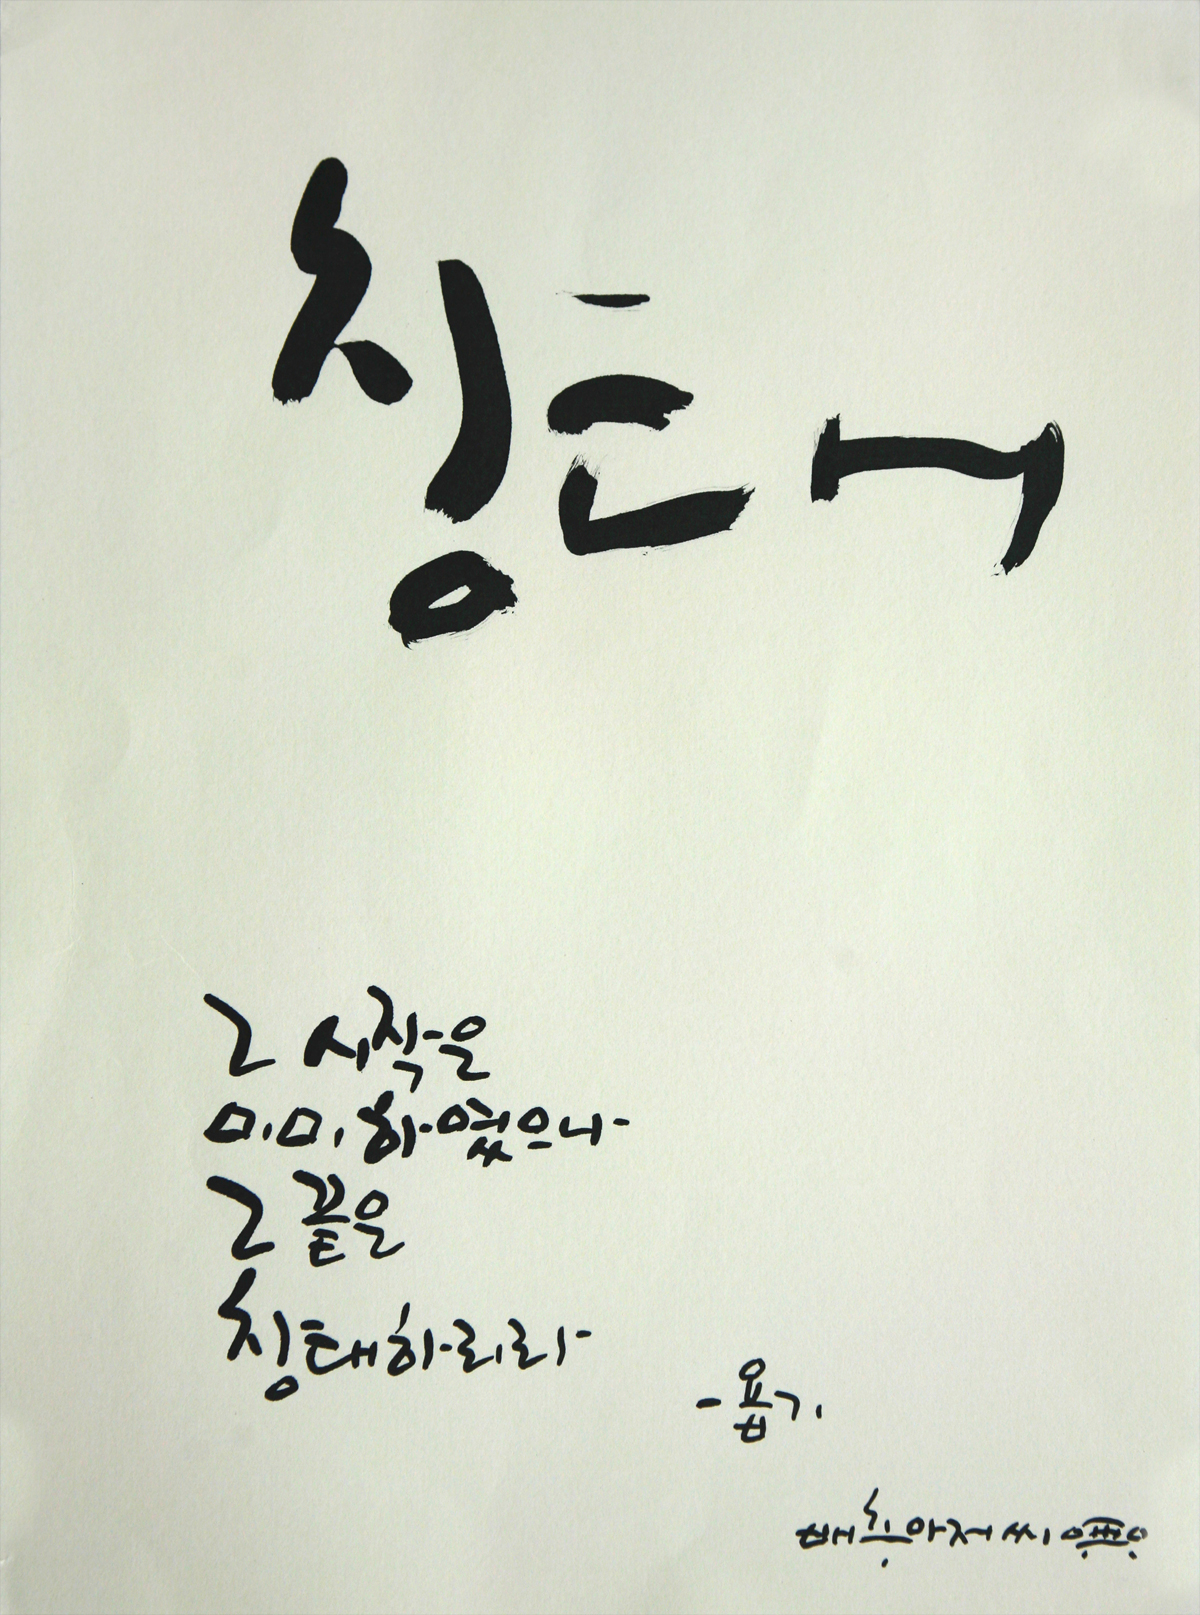 창대
그 시작은
미미하였으나
그 끝은
창대하리라
- 욥기
배추아저씨